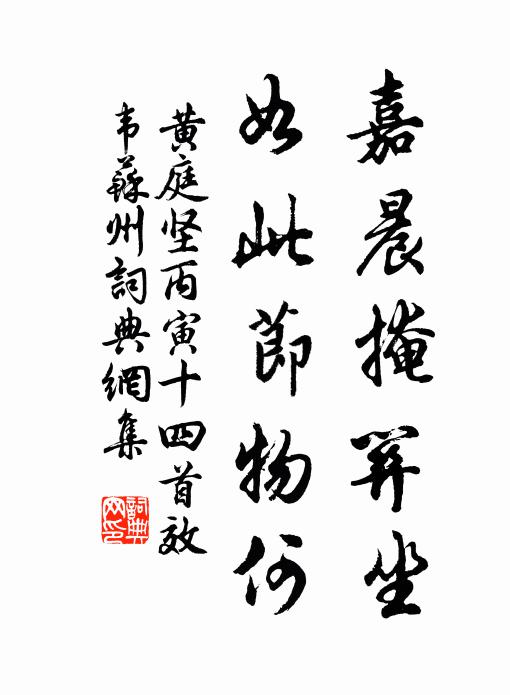 嘉晨掩關坐
如此節物何
黄庭坚丙寅十四首效
韦蘇州詞典網集
詞典
网印